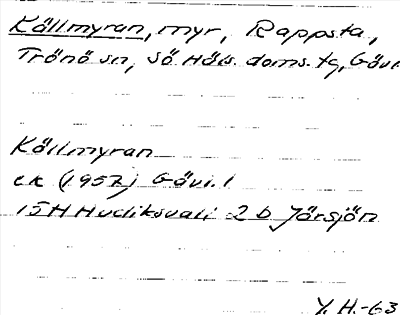 Källmyran, myr, Rappsta,
Trönö sn, Sö. Häls. doms. tg, Gävl.
Källmyran
ek (1957) Gävl. l
15H Hudiksvall 2 b Järsjön
Y. H. -63